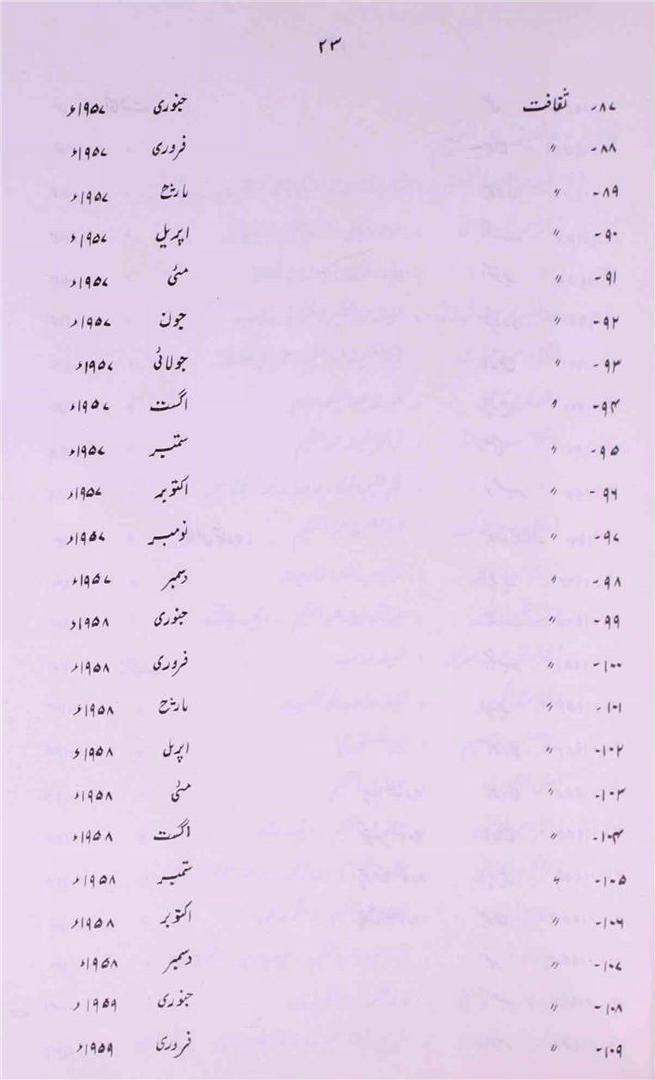 ۲۳
۸۷- ثقافت جنوری ۱۹۵۷ء
۸۸- " فروری ۱۹۵۷ء
۸۹- " مارچ ۱۹۵۷ء
۹۰- " اپریل ۱۹۵۷ء
۹۱- " مئی ۱۹۵۷ء
۹۲- " جون ۱۹۵۷ء
۹۳- " جولائی ۱۹۵۷ء
۹۴- " اگست ۱۹۵۷ء
۹۵- " ستمبر ۱۹۵۷ء
۹۶- " اکتوبر ۱۹۵۷ء
۹۷- " نومبر ۱۹۵۷ء
۹۸- " دسمبر ۱۹۵۷ء
۹۹- " جنوری ۱۹۵۸ء
۱۰۰- " فروری ۱۹۵۸ء
۱۰۱- " مارچ ۱۹۵۸ء
۱۰۲- " اپریل ۱۹۵۸ء
۱۰۳- " مئی ۱۹۵۸ء
۱۰۴- " اگست ۱۹۵۸ء
۱۰۵- " ستمبر ۱۹۵۸ء
۱۰۶- " اکتوبر ۱۹۵۸ء
۱۰۷- " دسمبر ۱۹۵۸ء
۱۰۸- " جنوری ۱۹۵۹ء
۱۰۹- " فروری ۱۹۵۹ء